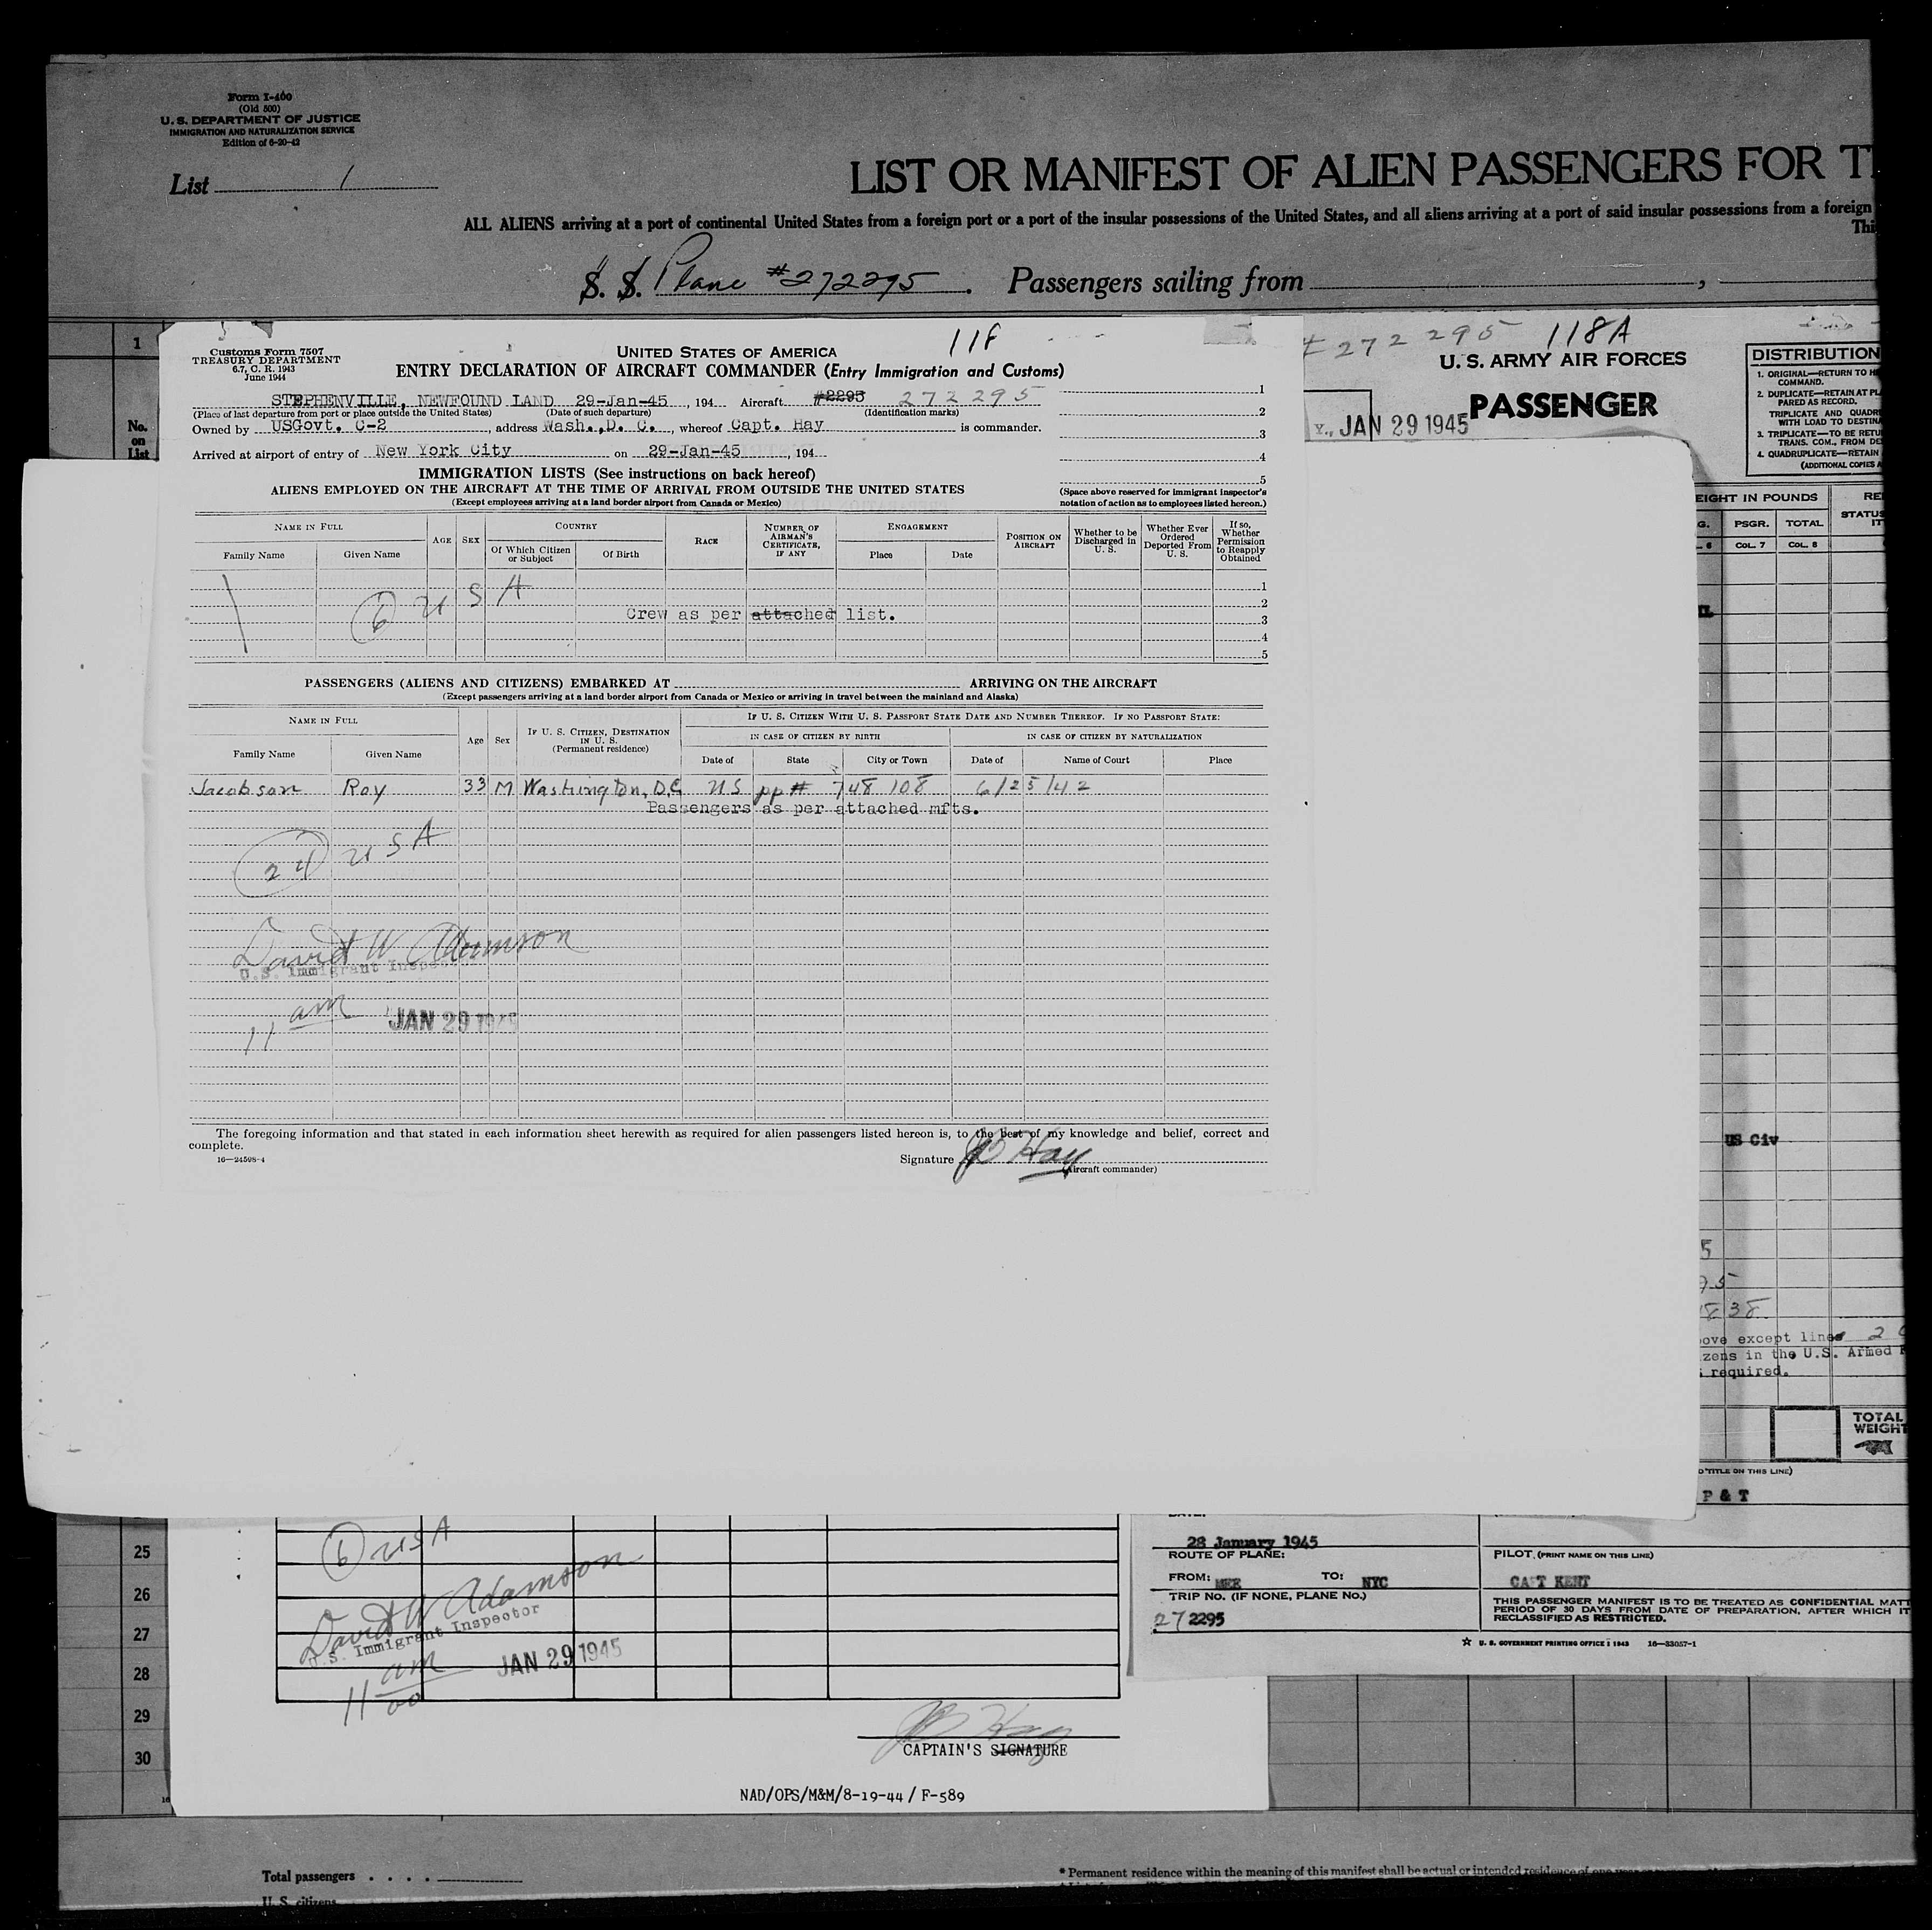 Form I-400
(Old 500)
U. S. DEPARTMENT OF JUSTICE
IMMIGRATION AND NATURALIZATION SERVICE
Edition of 6-20-42
List 1
LIST OR MANIFEST OF ALIEN PASSENGERS FOR T
ALL ALIENS arriving at a port of continental United States from a foreign port or a port of the insular possessions of the United States, and all aliens arriving at a port of said insular possessions from a foreign
Thi
S. S. Plane #272295. Passengers sailing from ,
1
No.
on
List
Customs Form 7507
TREASURY DEPARTMENT
6.7, C. R. 1943
June 1944
UNITED STATES OF AMERICA
ENTRY DECLARATION OF AIRCRAFT COMMANDER (Entry Immigration and Customs)
STEPHENVILLE, NEWFOUND LAND 29-Jan-45, 194 Aircraft #2295 272295
(Place of last departure from port or place outside the United States) (Date of such departure) (Identification marks)
Owned by USGovt. C-2, address Wash.,D. C., whereof Capt. Hay is commander.
Arrived at airport of entry of New York City on 29-Jan-45, 194
1
2
3
4
5
IMMIGRATION LISTS (See instructions on back hereof)
ALIENS EMPLOYED ON THE AIRCRAFT AT THE TIME OF ARRIVAL FROM OUTSIDE THE UNITED STATES
(Except employees arriving at a land border airport from Canada or Mexico)
(Space above reserved for immigrant inspector's
notation of action as to employees listed hereon.)
NAME IN FULL
Family Name Given Name
AGE SEX
COUNTRY
Of Which Citizen or Subject Of Birth
RACE
NUMBER OF AIRMAN'S CERTIFICATE, IF ANY
ENGAGEMENT
Place Date
POSITION ON AIRCRAFT
Whether to be Discharged in U. S.
Whether Ever Ordered Deported From U. S.
If so, Whether Permission to Reapply Obtained
6 USA
Crew as per attached list.
1
2
3
4
5
PASSENGERS (ALIENS AND CITIZENS) EMBARKED AT ARRIVING ON THE AIRCRAFT
(Except passengers arriving at a land border airport from Canada or Mexico or arriving in travel between the mainland and Alaska)
NAME IN FULL
Family Name Given Name
Age Sex
IF U. S. CITIZEN, DESTINATION IN U. S.
(Permanent residence)
IF U. S. CITIZEN WITH U. S. PASSPORT STATE DATE AND NUMBER THEREOF. IF NO PASSPORT STATE:
IN CASE OF CITIZEN BY BIRTH IN CASE OF CITIZEN BY NATURALIZATION
Date of State City or Town Date of Name of Court Place
Jacobson Roy 33 M Washington, D.C US pp# 748 108 6/25/42
Passengers as per attached mfts.
24 USA
David W Adamson
U.S. Immigrant Inspec
11 am JAN 29 1945
The foregoing information and that stated in each information sheet herewith as required for alien passengers listed hereon is, to the best of my knowledge and belief, correct and
complete.
16—24598-4
Signature JB Hay
(Aircraft commander)
272295 118A
U. S. ARMY AIR FORCES
PASSENGER
Y., JAN 29 1945
DISTRIBUTION
1. ORIGINAL—RETURN TO H
COMMAND.
2. DUPLICATE—RETAIN AT PL
PARED AS RECORD.
TRIPLICATE AND QUADR
WITH LOAD TO DESTINA
3. TRIPLICATE—TO BE RETU
TRANS. COM., FROM DE
4. QUADRUPLICATE—RETAIN
(ADDITIONAL COPIES A
EIGHT IN POUNDS
G. PSGR. TOTAL
6 COL. 7 COL. 8
RE
STATUS
IT
US Civ
5
95
1838
ove except lines 2
zens in the U.S. Armed
required.
TOTAL
WEIGHT
D TITLE ON THIS LINE)
P & T
28 January 1945
ROUTE OF PLANE:
FROM: MEE TO: NYC
TRIP NO. (IF NONE, PLANE NO.)
272295
PILOT, (PRINT NAME ON THIS LINE)
CAPT KENT
THIS PASSENGER MANIFEST IS TO BE TREATED AS CONFIDENTIAL MATT
PERIOD OF 30 DAYS FROM DATE OF PREPARATION, AFTER WHICH IT
RECLASSIFIED AS RESTRICTED.
☆ U. S. GOVERNMENT PRINTING OFFICE : 1943 16—33057-1
25
26
27
28
29
30
6 USA
David W Adamson
U.S. Immigrant Inspector
11 am 00 JAN 29 1945
JB Hay
CAPTAIN'S SIGNATURE
NAD/OPS/M&M/8-19-44/ F-589
Total passengers
U. S. citizens
* Permanent residence within the meaning of this manifest shall be actual or intended residence of one year